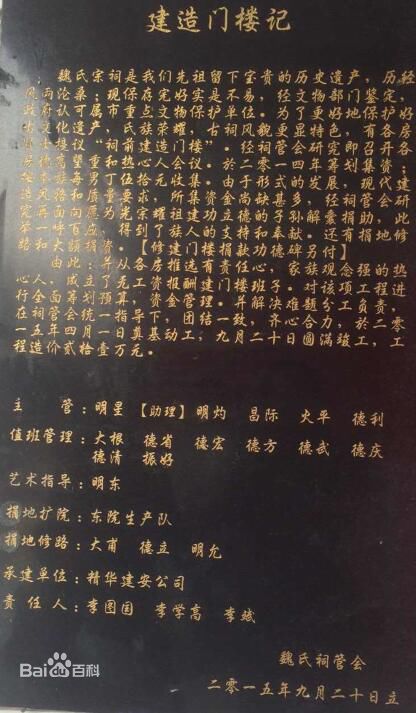 建造门楼记
魏氏宗祠是我们先祖留下宝贵的历史遗产，历经
风雨沧桑；现保存完好实是不易，经文物部门鉴定，
政府认可属市重点文物保护单位。为了更好地保护好
文化遗产，氏族荣耀，古祠风貌更显特色，有各房
建议“祠前建造门楼”。经祠管会研究即召开各
房 重和热心人会议。於二零一四年筹划集资；
每男丁伍拾元收集。由于形式的发展，现代建
要求，所集资金尚缺甚多，经祠管会研
究再 面 为光宗耀祖建功立德的子孙解囊捐助，此
得到了族人的支持和奉献。还有捐地修
路和 捐资。【修建门楼捐款功德碑另付】
由此；并从各房推选有责任心，家族观念强的热
心人，成立了无工资报酬建门楼班子。对该项工程进
行全面筹划预算，资金管理。并解决难题分工负责，
在祠管会统一指导下，团结一致，齐心合力，於二零
一五年四月一日奠基动工，九月二十日圆满竣工，工
程造价贰拾壹万元。
主 管：明星 【助理】明灼 昌际 火平 德利
值班管理：大根 德省 德宏 德方 德武 德庆
德清 振好
艺术指导：明东
捐地扩院：东院生产队
捐地修路：大甫 德立 明允
承建单位：精华建安公司
责 任 人：李图国 李学高 李斌
魏氏祠管会
二零一五年九月二十日立
Bai百科